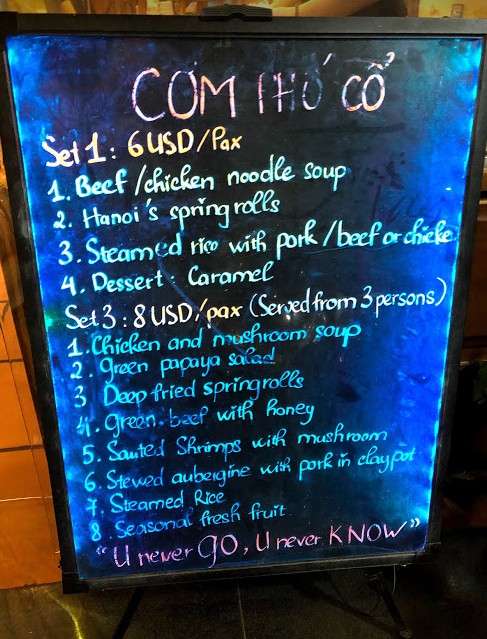 CƠM PHỐ CỔ
Set 1: 6 USD/Pax
1. Beef/chicken noodle soup
2. Hanoi's spring rolls
3. Steamed rice with pork/beef or chicke
4. Dessert. Caramel
Set 3: 8 USD/pax (Served from 3 persons)
1. Chicken and mushroom soup
2. Green papaya salad
3 Deep fried spring rolls
4. Green beef with honey
5. Sauted Shrimps with mushroom
6. Stewed aubergine with pork in clay pot
7. Steamed Rice
8 Seasonal fresh fruit
"U never GO, U never KNOW"